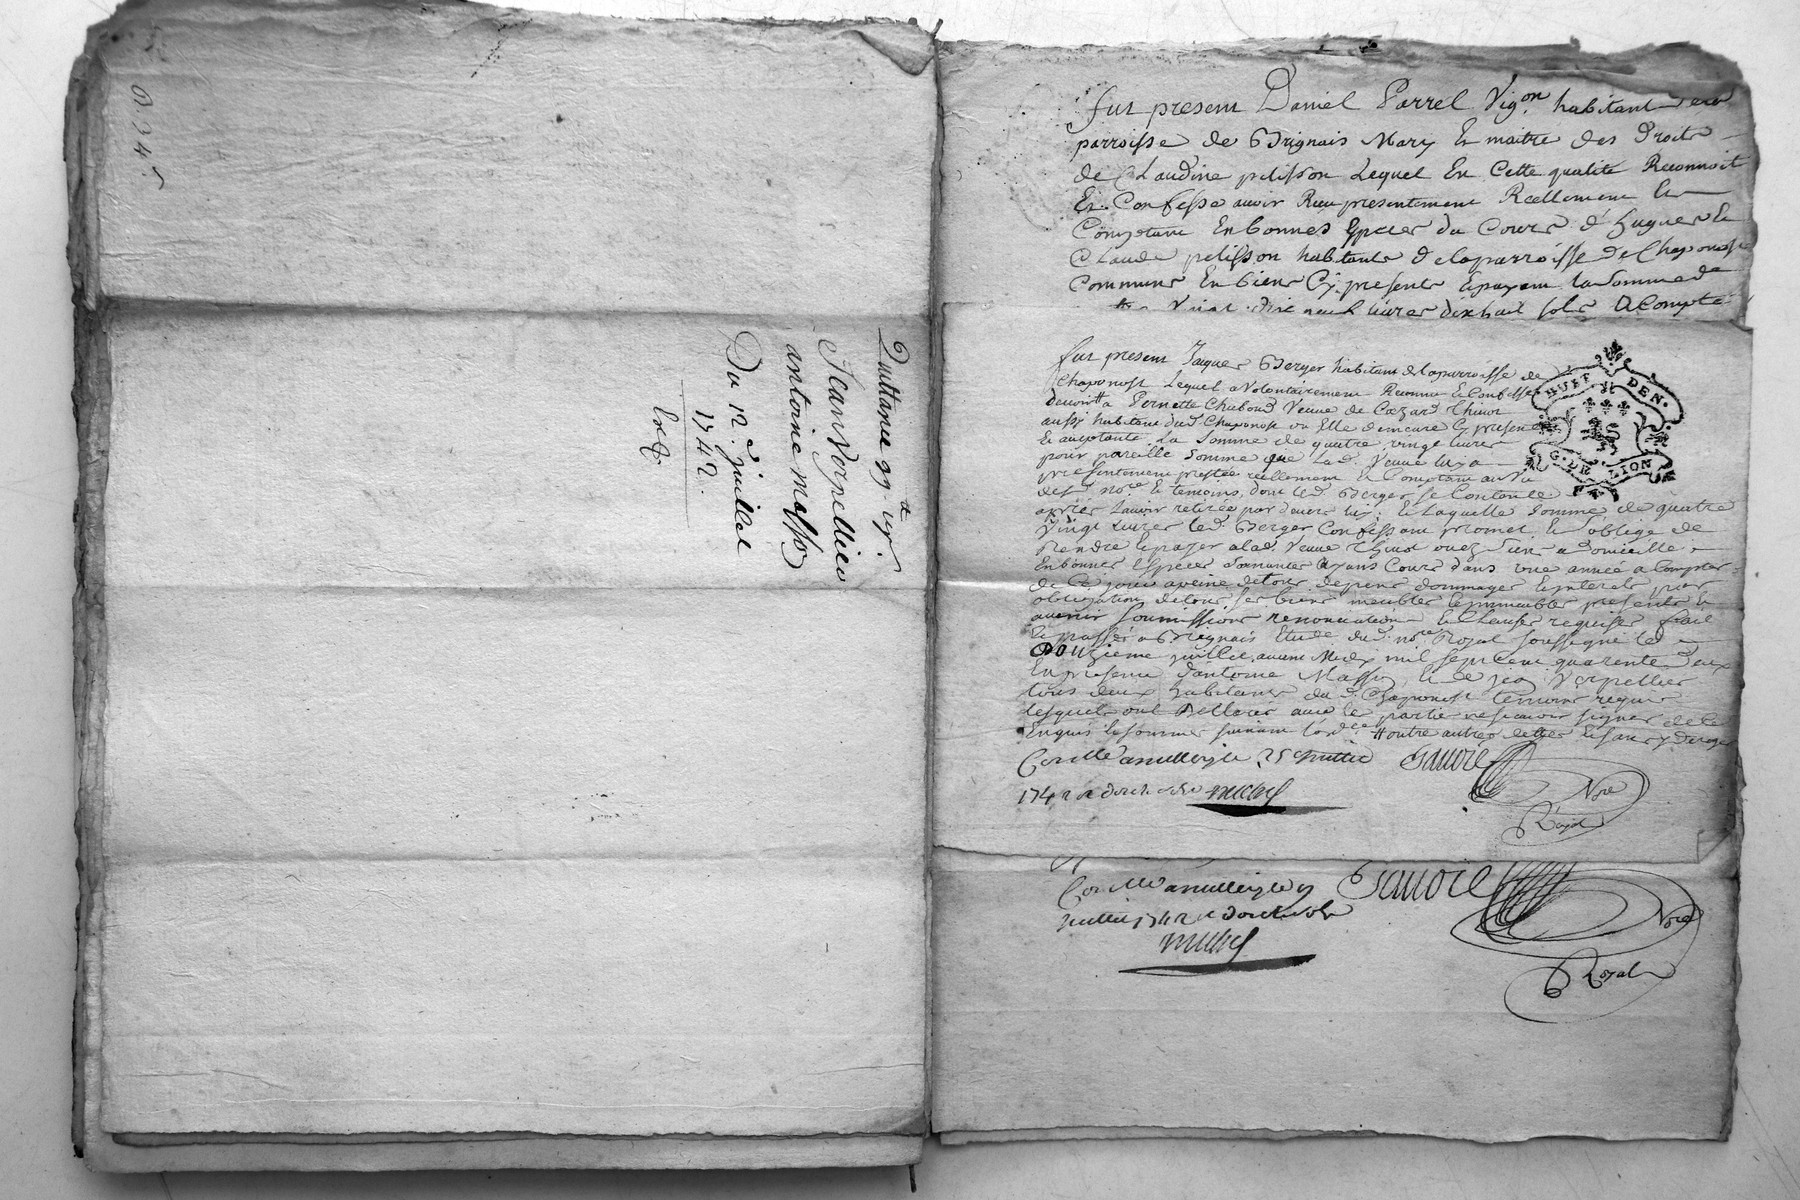 Quittance 99.tt 19s.
Jean Vorpellier
antoine masson
Du 12.e juillet
1742.
fut present Daniel Parrel Vig.on habitant dela
parroisse de Brignais Mary Et maitre des Droits
de Claudine pelisson Lequel En Cette qualité Reconnoit
Et Confesse avoir Reçu presentement Reellement Et
Comptant En bonnes Especes du Cours d'hugues Et
Claude pelisson habitants delaparroisse de Chaponost
Communs En biens Cy presents Et payant la Somme de
Vingt dix neuf livres dixhuit sols A Compte
fut present Jaques Berger habitant delaparroisse de
Chaponost Lequel a Volontairement Reconnu Et Confessé
devoir a Pernette Chaboud Veuve de Cezard Thinot
aussy habitant dud. Chaponost ou Elle demeure Cy presente
Et acceptante La Somme de quatre vingt livres
pour pareille Somme que Lad. Veuve luy a
presentement prestée réellement Et Comptant au Vu
desd. no.re Et temoins, dont led. Berger se Contente
apres L'avoir retirée par devers luy; Et Laquelle Somme de quatre
Vingt Livres led. Berger Confessant promet Et s'oblige de
Rendre Et payer a lad. Veuve Thinot ou es Siens a Domicille
En bonnes Especes Sonnantes Ayans Cours dans une année a Compter
de Ce jour a peine de tous depens dommages Et interets par
obligation de tous ses biens meubles Et immeubles presents Et
avenir Soumissions renonciations Et Clauses requises fait
Et passé a Brignais Etude dud. no.re Royal soussigné le
Douzieme juillet avant Midy mil sept cent quarente Deux
En presence d'antoine Masson, Et de jean Vorpellier
tous deux habitants dud. Chaponost temoins requis
lesquels ont Declarés avec les parties ne scavoir signer de Ce
Enquis Et sommés suivant l'ord.ce
HUIT DEN.
G. DE LION
Con.llé a millery le 25 juillet
1742 R douze sols
michel
Gauoré
No.re
Royal
Con.llé a millery le
juillet 1742 R douze sols
michel
Gauoré
No.re
Royal